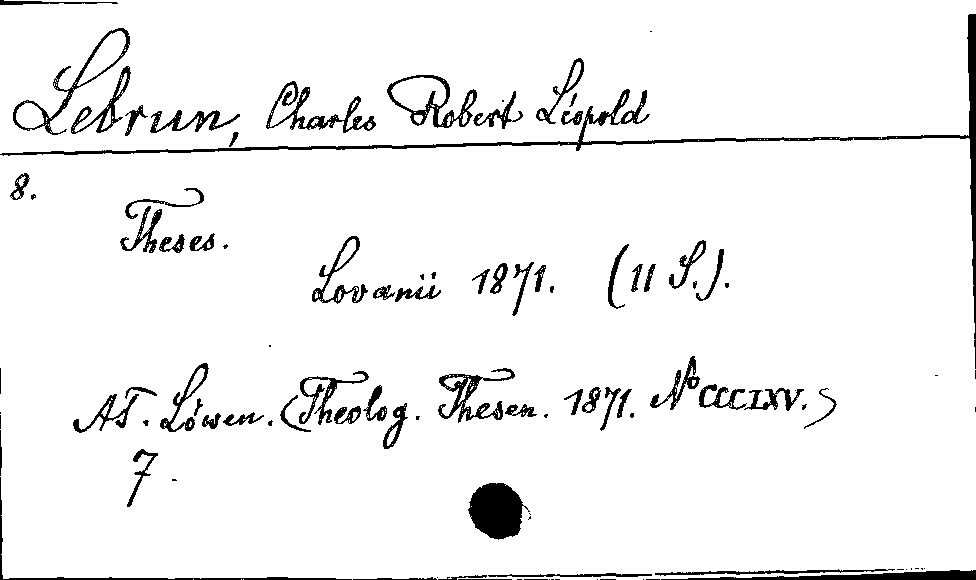 Lebrun, Charles Robert Léopold
8.
Theses.
Lovanii 1871. (11 S.).
AT. Löwen. (Theolog. Thesen. 1871. No CCCLXV.)
7